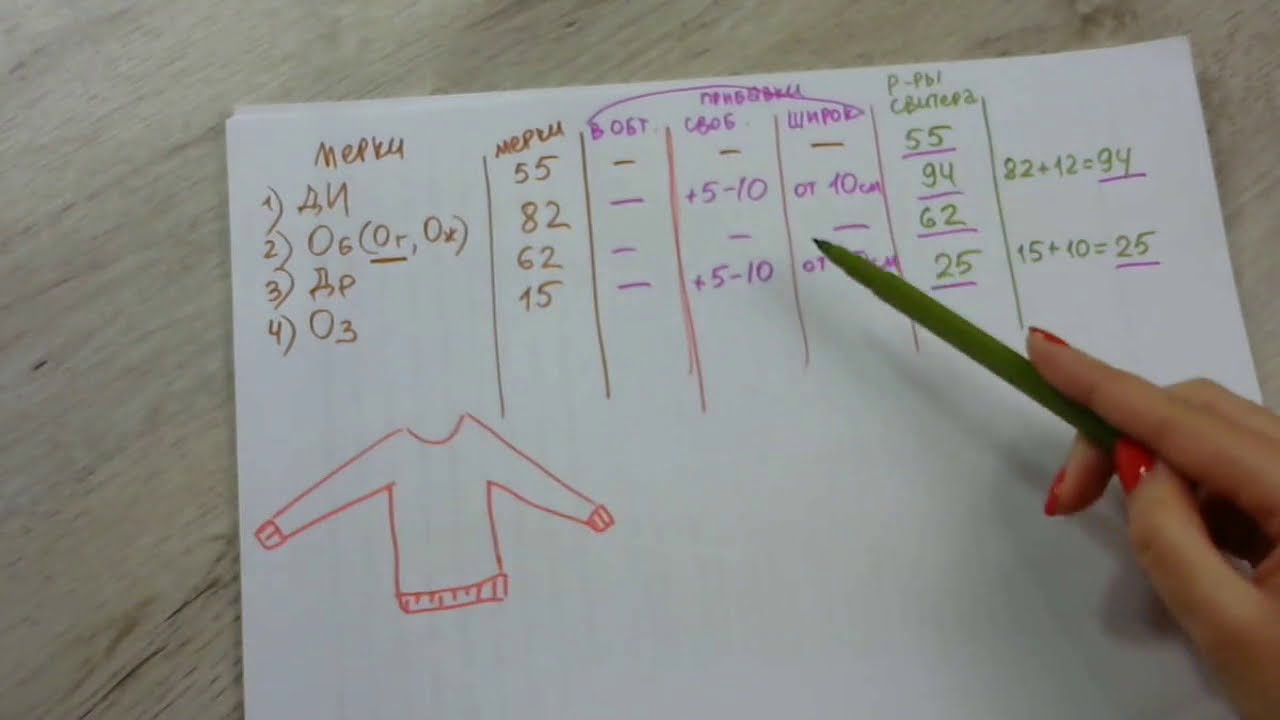 прибавки
р-ры
свитера
Мерки мерки в обт. своб. широк
1) ДИ 55 – – – 55
2) Об (Ог, Ож) 82 – +5-10 от 10см 94 82+12=94
3) Др 62 – – – 62
4) Оз 15 – +5-10 от см 25 15+10=25